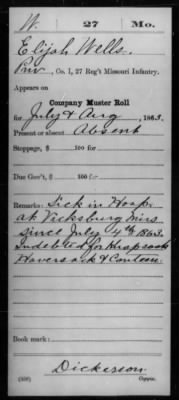 W. 27 Mo.
Elijah Wells.
Priv., Co. I, 27 Reg't Missouri Infantry.
Appears on
Company Muster Roll
for July & Aug, 1863.
Present or absent Absent
Stoppage, $ 100 for
Due Gov't, $ 100 for
Remarks: Sick in Hosp.
at Vicksburg Miss
since July 4th 1863.
Indebted for Knapsack
Haversack & Canteen.
Book mark:
Dickerson
(358) Copyist.